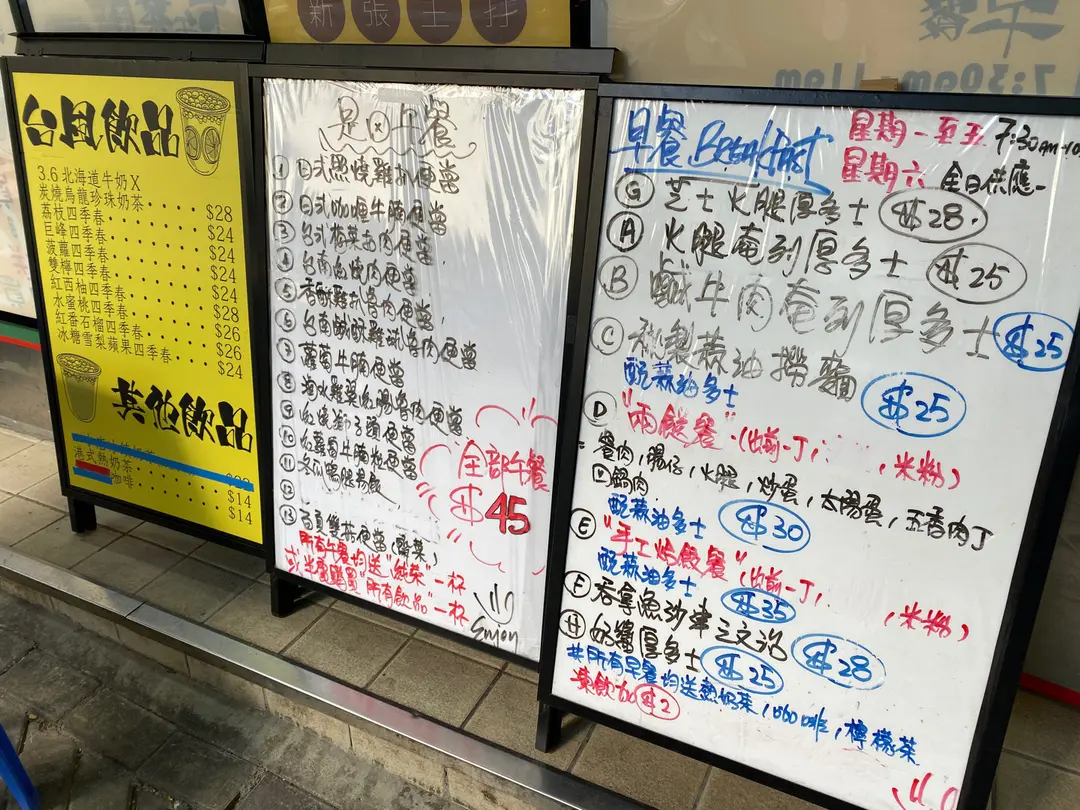 新張主打
台風飲品
3.6北海道牛奶X
炭燒烏龍珍珠奶茶 $28
荔枝四季春 $24
巨峰四季春 $24
菠蘿四季春 $24
雙檸四季春 $24
紅西柚四季春 $28
水蜜桃四季春 $28
紅番石榴四季春 $26
冰糖雪梨蘋果四季春 $26
$24
其他飲品
港式熱奶茶 $14
咖啡 $14
是日午餐
① 日式照燒雞扒便當
2 日式咖喱牛腩便當
3 台式梅菜扣肉便當
4 台南鹵燒肉便當
⑤ 香酥雞扒魯肉便當
⑥ 台南鹹酥雞魯肉便當
⑦ 蘿蔔牛腩便當
⑧ 滷水雞翼魯肉便當
⑨ 紅燒獅子頭便當
⑩ 蘿蔔牛腩便當
⑪
⑫
⑬ 百頁雙菇便當(齋菜)
全部午餐
$45
所有午餐均送"純茶"一杯
或半價購買"所有飲品"一杯
Enjoy
早餐 Breakfast
星期一至五 7:30AM
星期六 全日供應
G 芝士火腿厚多士 $28
A 火腿奄列厚多士 $25
B 鹹牛肉奄列厚多士 $25
C 秘製蒜油撈麵 $25
配蒜油多士
D "兩餸餐" (出前一丁, 米粉)
餐肉,腸仔,火腿,炒蛋,太陽蛋,五香肉丁
回鍋肉
配蒜油多士 $30
E "手工焓飯餐" (出前一丁, ,米粉)
配蒜油多士 $35
F 吞拿魚沙律三文治 $28
H 奶醬厚多士 $25
#所有早餐均送熱奶茶,咖啡,檸檬茶
凍飲加$2
7:30am-11am